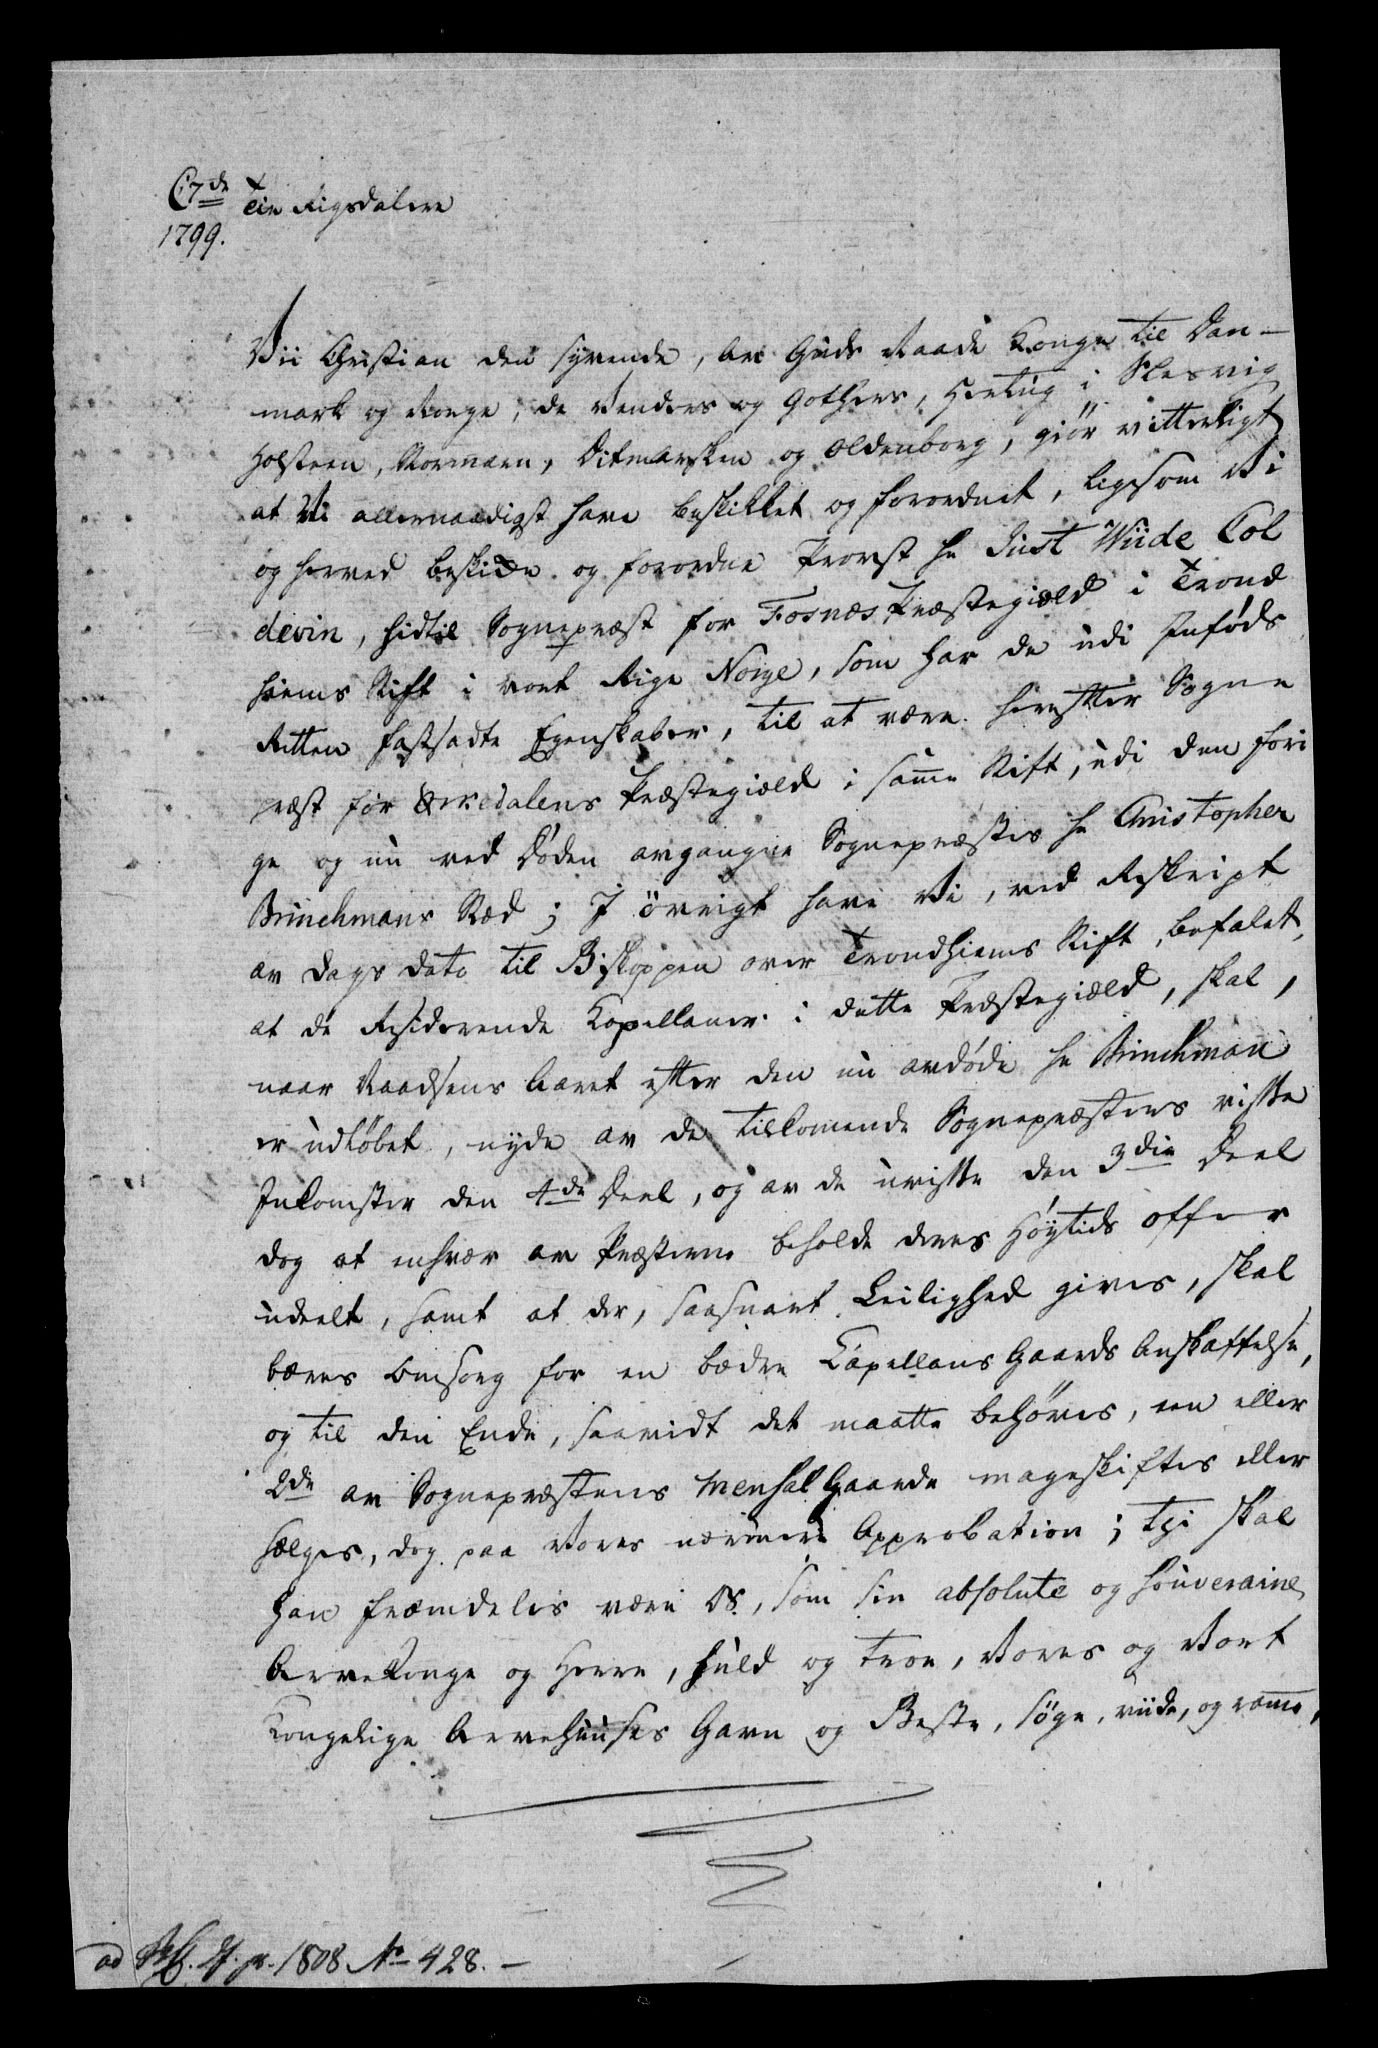 C7de Tie Rigsdalere
1799.
Vii Christian den syvende, av Guds Naade Konge til Dan-
mark og Norge, de Venders og Gothers, Hertug i Slesvig
Holsteen, Stormarn, Ditmarsken og Oldenborg, giör vitterligt
at Vi allernaadigst have beskikket og forordnet, ligesom Vi
og herved beskikke og forordne Provst Hr Just Wiide Col
devin, hidtil Sognepræst for Fosnæs Præstegiæld i Trond
hiems Stift i vort Rige Norge, som har de udi Inføds
Retten fastsadte Egenskaber, til at være herefter Sogne
præst for Ørkedalens Præstegiæld i samme Stift, udi den fori
ge og nu ved Døden avgangne Sognepræstes Hr Christopher
Brinchmans Stæd; I övrigt have Vi, ved Reskript
av Dags Dato til Biskoppen over Trondhiems Stift, befalet,
at de Residerende Kapellaner i dette Præstegiæld, skal,
naar Naadsens Aaret efter den nu avdøde Hr Brinchman
er udløbet, nyde av de tilkomende Sognepræstens visse
Inkomster den 4de Deel, og av de uvisse den 3die Deel
dog at enhver av Præsterne beholde deres Høytids offer
udeelt, samt at der, saasnart Leilighed gives, skal
bæres Omsorg for en bædre Capellans Gaards Anskaffelse,
og til den Ende, saavidt det maatte behøves, een eller
2de av Sognepræstens Mensal Gaarde mageskiftes eller
sælges, dog paa Vores nærmere Approbation; thi skal
han fræmdeles være OS, som sin absolute og souveraine
Arve Konge og Herre, huld og troe, Vores og Vort
Kongelige Arvehuuses Gavn og Beste, söge, viide, og ramme,
ad 1808 No 428. -